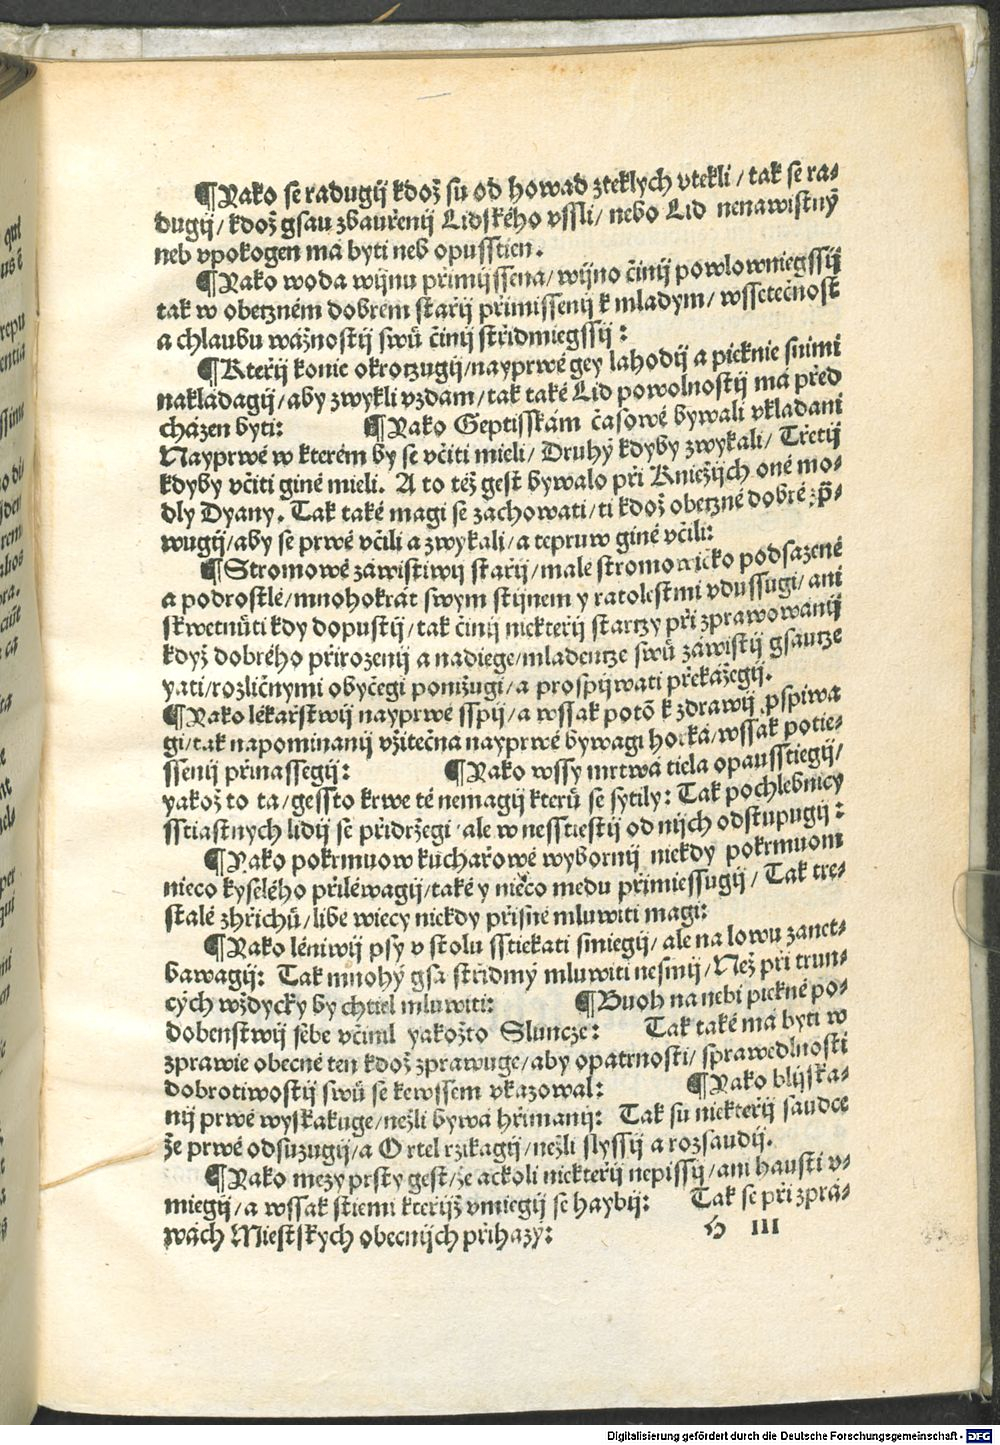 ¶Yako se radugij kdož su od howad zteklych vtekli / tak se ra-
dugij / kdož gsau zbauřenij Lidského vssli / nebo Lid nenawistný
neb vpokogen má byti neb opusstien.
¶Yako woda wijnu přimijssena / wijno činij powlowniegssij
tak w obetzném dobrém stařij přimissenij k mladym / wssetečnost
a chlaubu wážnostij swů činij střidmiegssij :
¶Kteřij konie okrotzugij / nayprwé gey lahodij a pieknie snimi
nakládagij / aby zwykli vzdám / tak také Lid powolnostij má před
cházen byti: ¶Yako Geptisskám časowé bywali vkladani
Nayprwé w kterém by se včiti mieli / Druhý kdyby zwykali / Třetij
kdyby včiti giné mieli. A to též gest bywalo při Kniežijch oné mo-
dly Dyany. Tak také magi se zachowati / ti kdož obetzné dobré zp̄-
wugij / aby se prwé včili a zwykali / a tepruw giné včili:
¶Stromowé záwistiwij stařij / malé stromowičko podsazené
a podrostlé / mnohokrát swym stijnem y ratolestmi vdussugi / ani
skwetnůti kdy dopustij / tak činij niekteřij startzy při zprawowánij
když dobrého přirozenij a nadiege / mládentze swů záwistij gsautze
yati / rozličnymi obyčegi ponižugi / a prospijwati překážegij.
¶Yako lékařstwij nayprwé sspij / a wssak potō k zdrawij pspiwa
gi / tak napomínanij vžitečna nayprwé bywagi horká / wssak potie-
ssenij přinassegij: ¶Yako wssy mrtwá tiela opausstiegij /
yakož to ta / gessto krwe té nemagij kterů se sytily: Tak pochlebnicy
sstiastnych lidij se přidržegi / ale w nesstiestij od nijch odstupugij :
¶Yako pokrmuow kuchařowé wybornij niekdy pokrmuom
nieco kyselého přiléwagij / také y niečo medu přimiessugij / Tak tre-
stalé zhřichů / libé wiecy niekdy přísné mluwiti magi:
¶Yako léniwij psy v stolu sstiekati smiegij / ale na lowu zanet-
bawagij: Tak mnohý gsa střidmý mluwiti nesmij / Než při trun-
cých wždycky by chtiel mluwiti: ¶Buoh na nebi piekné po-
dobenstwij sebe včinil yakožto Sluncze: Tak také má byti w
zprawie obecné ten kdož zprawuge / aby opatrnosti / sprawedlnosti
dobrotiwostij swů se kewssem vkazowal: ¶Yako blijska-
nij prwé wyskakuge / nežli bywá hřimanij: Tak su niekteřij saudce
že prwé odsuzugij / a Ortel rzikagij / nežli slyssij a rozsaudij.
¶Yako mezy prsty gest / že ačkoli niekteřij nepissij / ani hausti v-
miegij / a wssak stiemi kteřijž vmiegij se haybij: Tak se při zprá-
wách Miestských obecnijch přihazý: H III
Digitalisierung gefördert durch die Deutsche Forschungsgemeinschaft - DFG